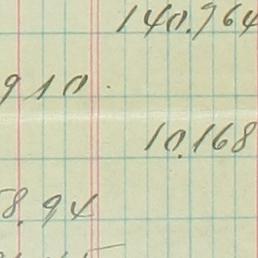 140.964
910
10.168
8.94